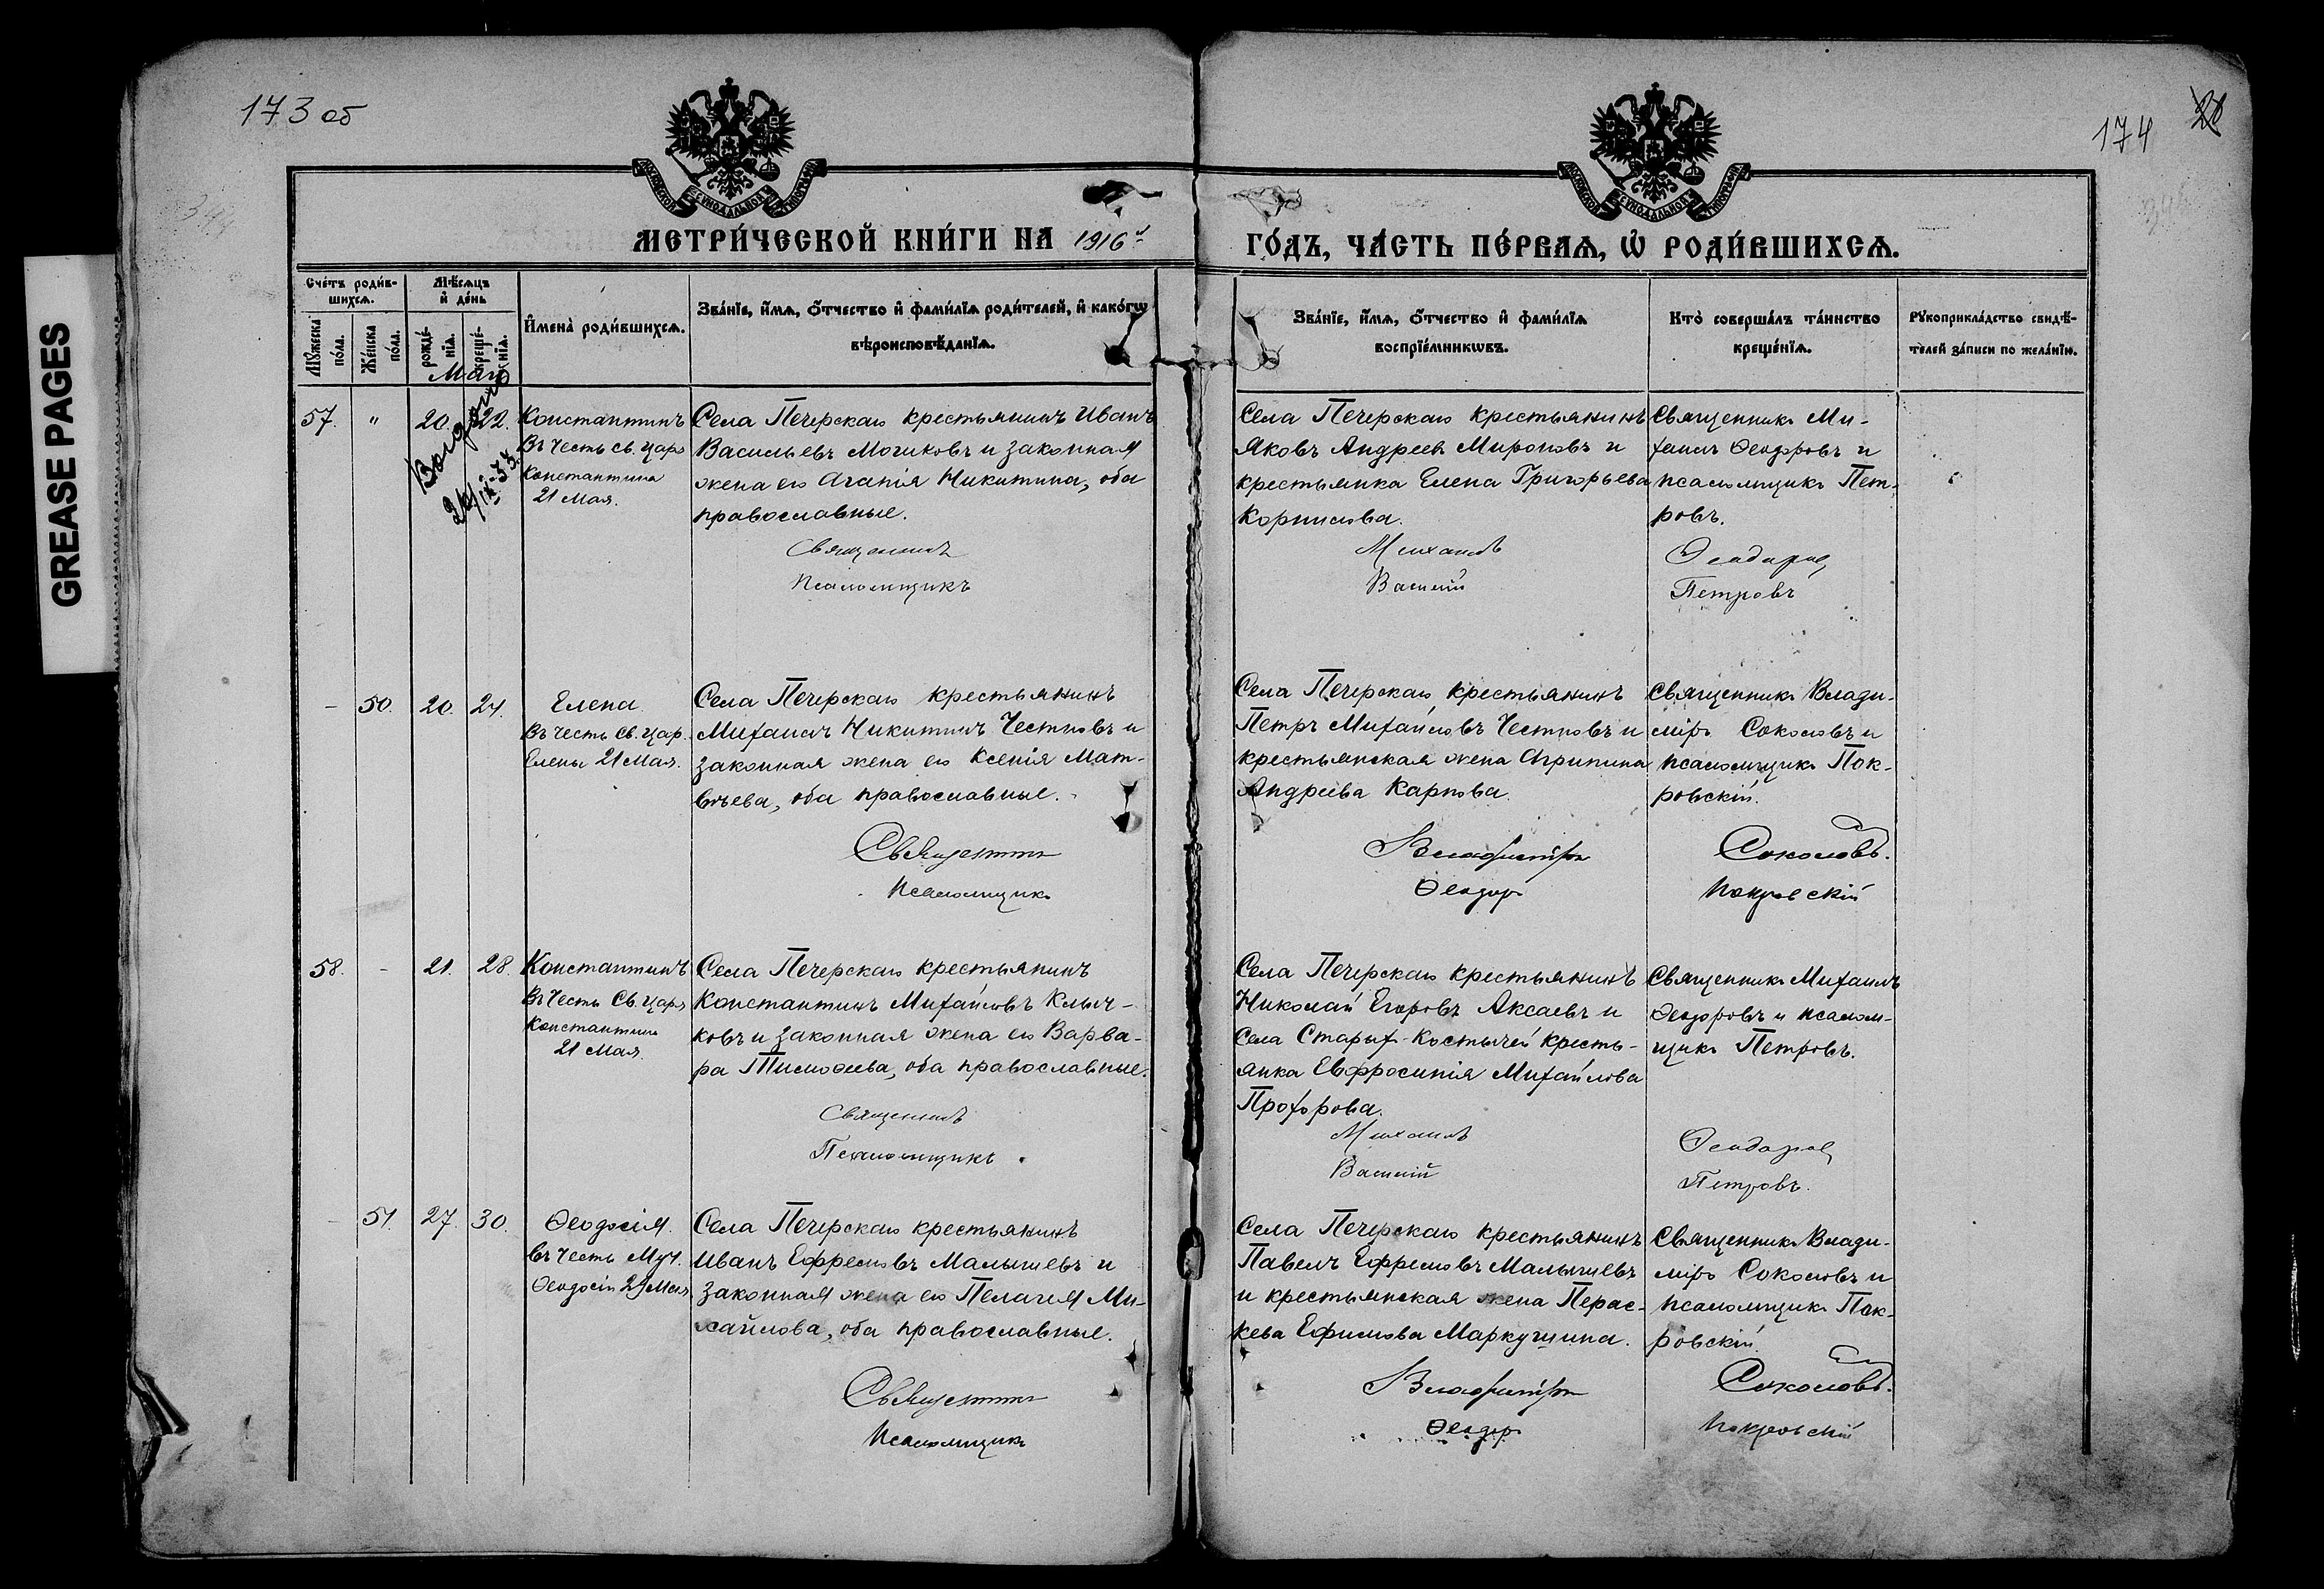 173 об
174
GREASE PAGES
МЕТРИ́ЧЕСКОЙ КНИ́ГИ НА 1916 г.
ГО́ДЪ, ЧА́СТЬ ПЕ́РВАѦ, Ѽ РОДИ́ВШИХСѦ.
Сче́тъ роди́в-
шихсѧ.
Мꙋ́жеска по́ла.
Же́нска по́ла.
Мѣ́сѧцъ и҆ де́нь
рожде́-
нїѧ.
креще́-
нїѧ.
И҆мена̀ роди́вшихсѧ.
Зва́нїе, и҆́мѧ, ѻ҆́тчество и҆ фами́лїѧ роди́телей, и҆ како́гѡ
вѣроисповѣ́данїѧ.
Зва́нїе, и҆́мѧ, ѻ҆́тчество и҆ фами́лїѧ
воспрїе́мникѡвъ.
Кто̀ соверша́лъ та́инство
креще́нїѧ.
Рꙋкоприкла́дство свидѣ́-
телей за́писи по жела́нїю.
Май
57. " 20. 22.
Константинъ
Въ честь св. царя
Константина
21 Мая.
Села Печерскаго крестьянинъ Иванъ
Васильевъ Мочиковъ и законная
жена его Агапія Никитина, оба
православные.
Священникъ
Псаломщикъ
Села Печерскаго крестьянинъ
Яковъ Андреевъ Мироновъ и
крестьянка Елена Григорьева
Корнилова.
Михаилъ
Василій
Священникъ Ми-
хаилъ Ѳеодоровъ и
псаломщикъ Пет-
ровъ.
Ѳеодоровъ
Петровъ
- 50. 20. 24.
Елена
Въ честь Св. цар.
Елены 21 Мая.
Села Печерскаго крестьянинъ
Михаилъ Никитинъ Честновъ и
законная жена его Ксенія Мат-
вѣева, оба православные.
Священникъ
Псаломщикъ
Села Печерскаго крестьянинъ
Петръ Михайловъ Честновъ и
крестьянская жена Агрипина
Андреева Карпова.
Владиміръ
Ѳеодоръ
Священникъ Влади-
міръ Соколовъ и
псаломщикъ Пок-
ровскій.
Соколовъ.
Покровскій
58. - 21. 28.
Константинъ
Въ честь Св. Царя
Константина
21 Мая.
Села Печерскаго крестьянинъ
Константинъ Михайловъ Клыч-
ковъ и законная жена его Варва-
ра Тимоѳеева, оба православные.
Священникъ
Псаломщикъ
Села Печерскаго крестьянинъ
Николай Егоровъ Аксаевъ и
Села Старых Костычей кресть-
янка Евфросинія Михайлова
Прохорова.
Михаилъ
Василій
Священникъ Михаилъ
Ѳеодоровъ и псалом-
щикъ Петровъ.
Ѳеодоровъ
Петровъ.
- 51. 27. 30.
Ѳеодосія.
въ честь Муч.
Ѳеодосіи 29 Мая
Села Печерскаго крестьянинъ
Иванъ Ефремовъ Малышевъ и
законная жена его Пелагея Ми-
хайлова, оба православные.
Священникъ
Псаломщикъ
Села Печерскаго крестьянинъ
Павелъ Ефремовъ Малышевъ
и крестьянская жена Перас-
кева Ефимова Маркушина.
Владиміръ
Ѳеодоръ
Священникъ Влади-
міръ Соколовъ и
псаломщикъ Пок-
ровскій.
Соколовъ.
Покровскій